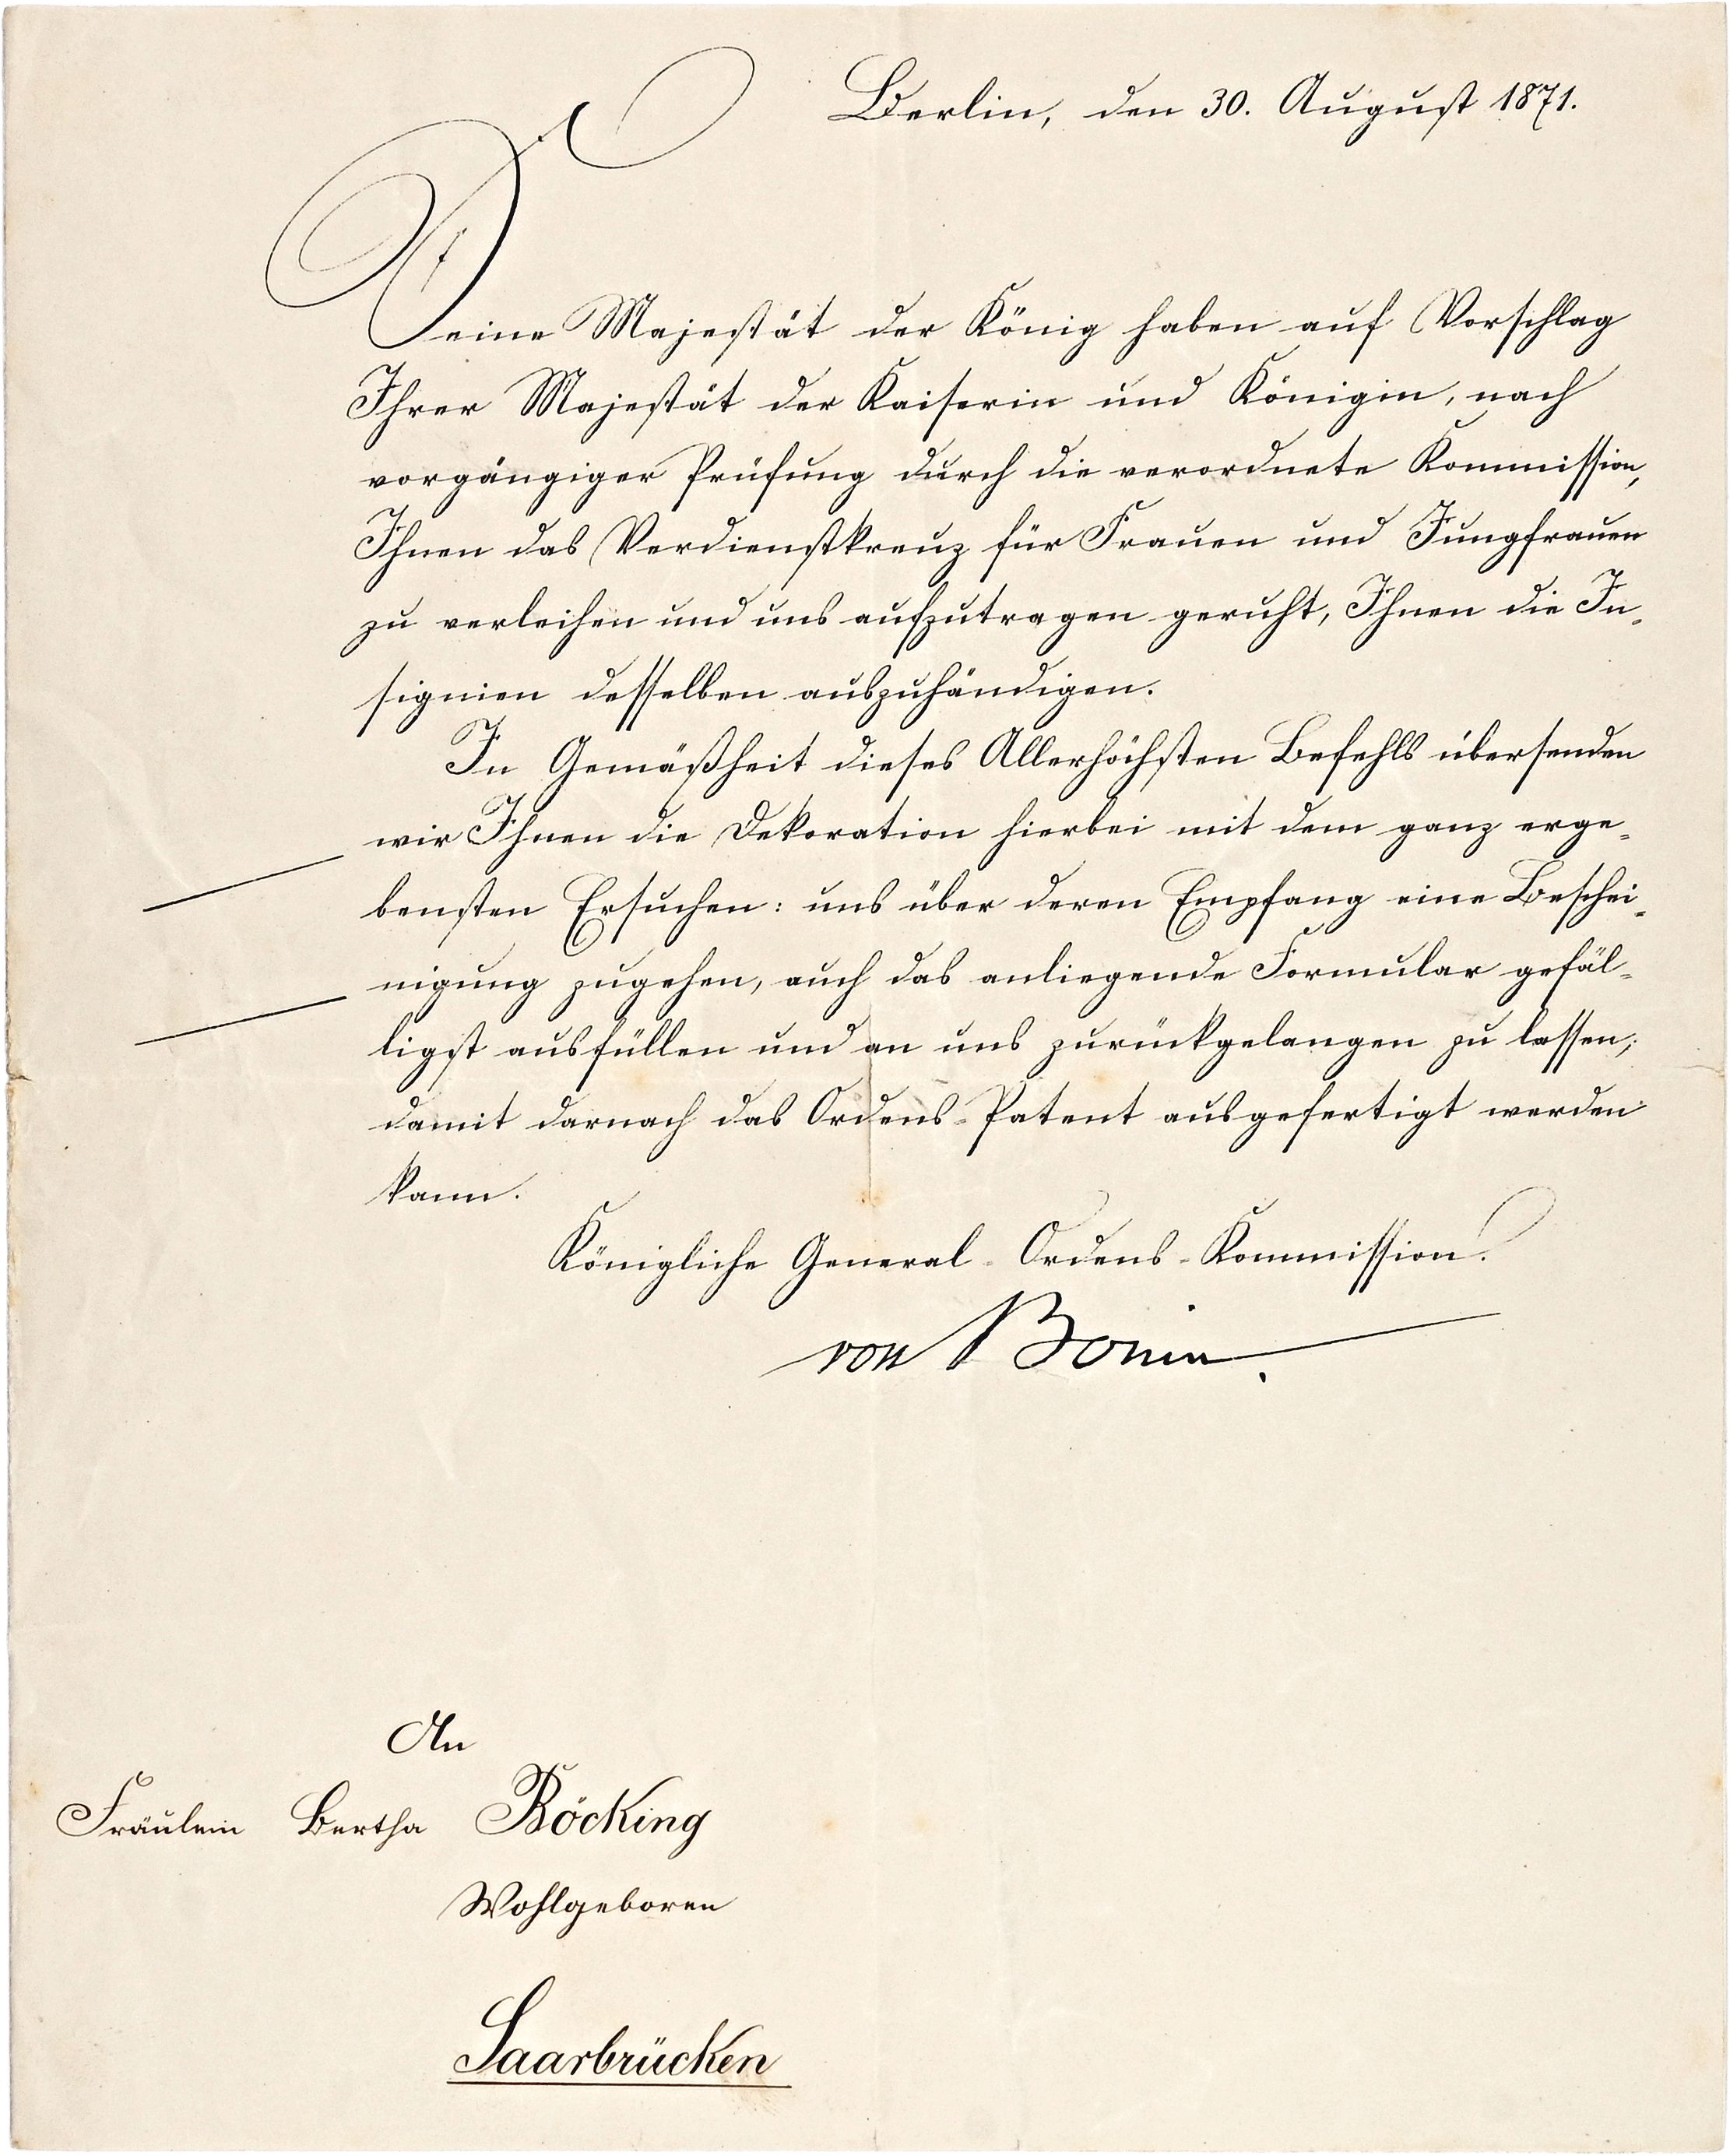 Berlin, den 30. August 1871.
Seine Majestät der König haben auf Vorschlag
Ihrer Majestät der Kaiserin und Königin, nach
vorgängiger Prüfung durch die verordnete Kommission,
Ihnen das Verdienstkreuz für Frauen und Jungfrauen
zu verleihen und uns aufzutragen geruht, Ihnen die In-
signien desselben auszuhändigen.
In Gemäßheit dieses Allerhöchsten Befehls übersenden
wir Ihnen die Dekoration hierbei mit dem ganz erge-
bensten Ersuchen: uns über deren Empfang eine Beschei-
nigung zugehen, auch das anliegende Formular gefäl-
ligst ausfüllen und an uns zurückgelangen zu lassen,
damit darnach das Ordens-Patent ausgefertigt werden
kann.
Königliche General-Ordens-Kommission.
von Bonin.
An
Fräulein Bertha Böcking
Wohlgeboren
Saarbrücken